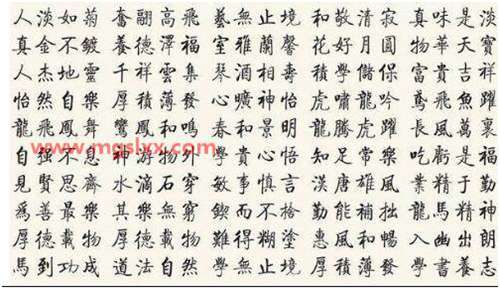 人淡如菊 奮翮高飛 藝無止境 和敬清寂 真味是淡
真金不鍍 養德澤福 室雅蘭馨 花好月圓 物華天寶
人杰地靈 千祥雲集 琴酒相壽 積學儲保 富貴吉祥
怡然自樂 厚積薄發 心曠神怡 虎嘯龍吟 鳶飛魚躍
龍飛鳳舞 鸞鳳和鳴 春和景明 龍騰虎躍 長風萬裏
www.mgslxx.com
自强不息 神游物外 學貴心悟 知足常樂 吃虧是福
見賢思齊 水滴石穿 敏事慎言 漢唐雄風 業精于勤
爲善最樂 其樂無窮 鍥而不捨 勤能補拙 龍馬精神
厚德載物 難得糊塗 惠風和暢 入幽出朗
馬到功成 道法自然 學無止境 厚積薄發 學書養志